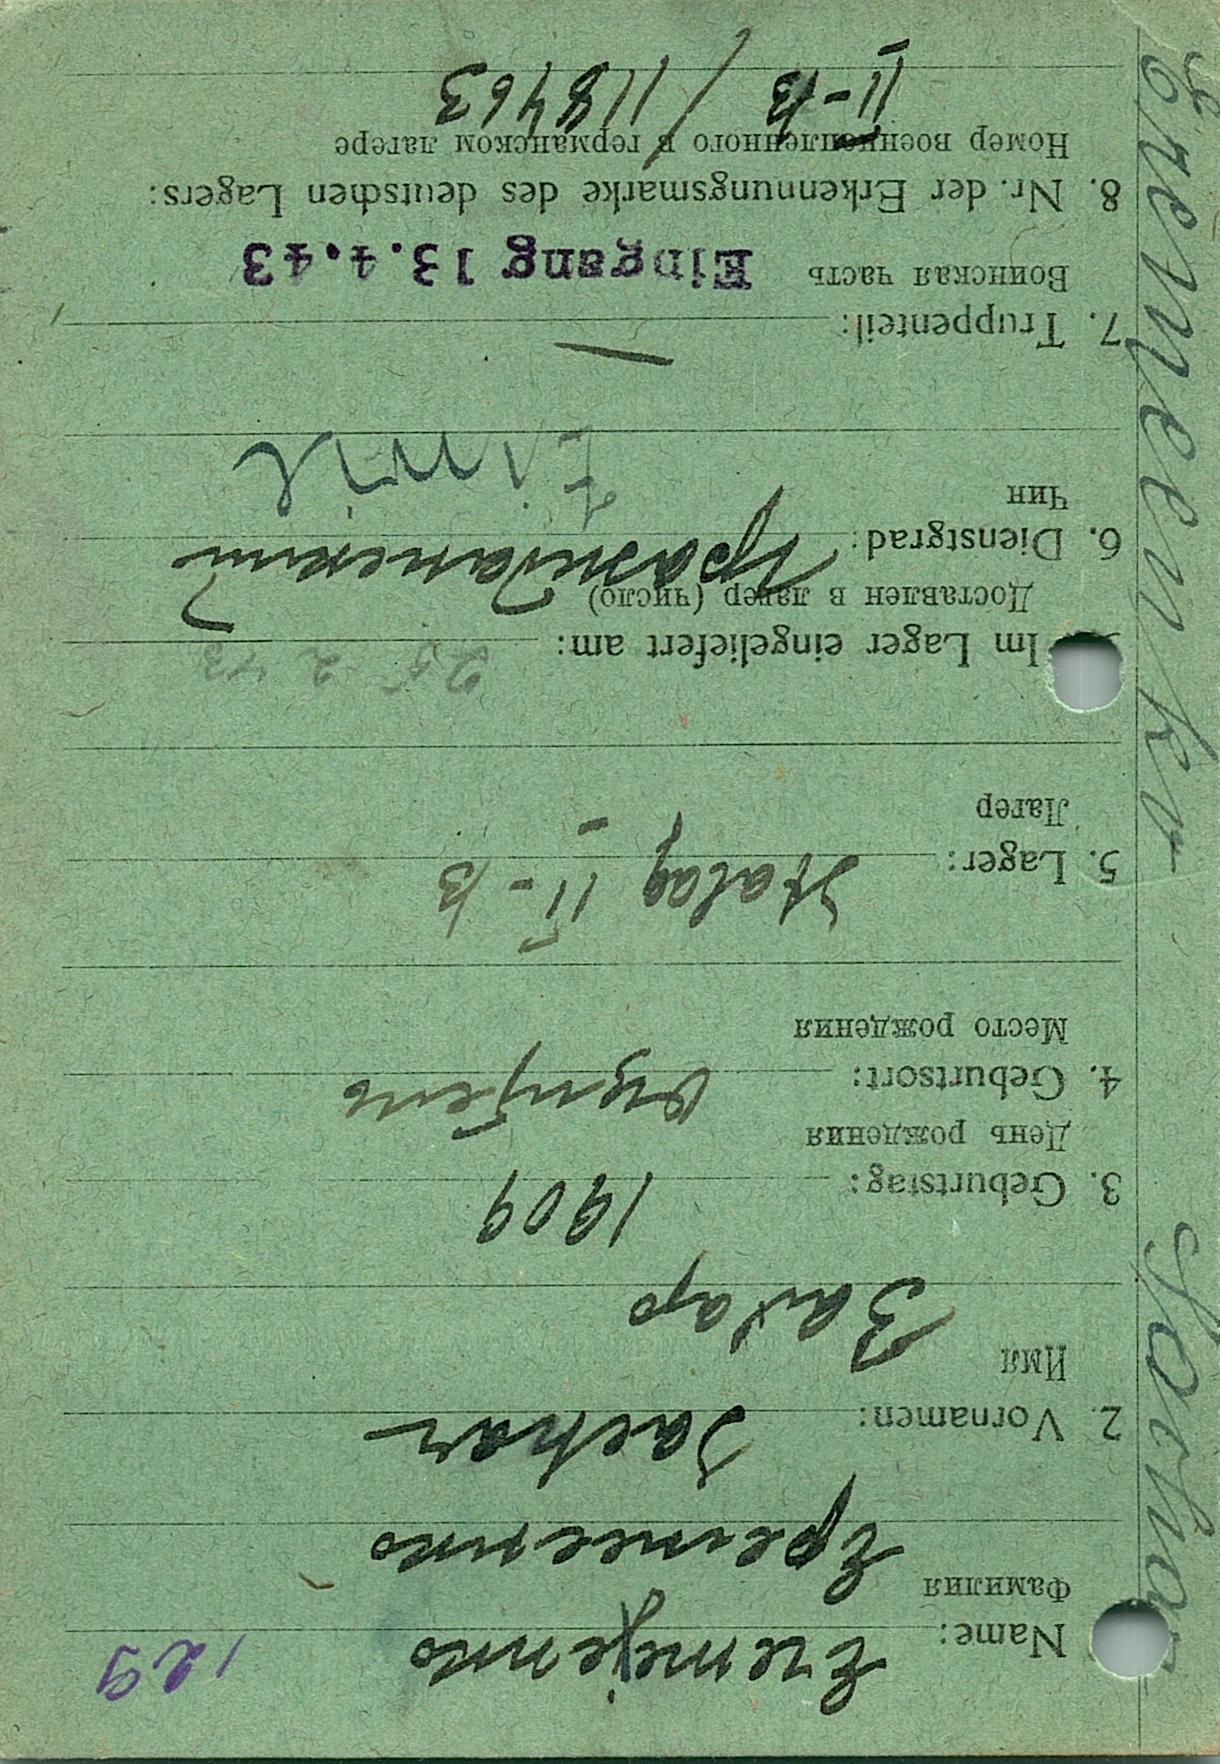 129
Name: Eremejenko
Фамилия
Еременко
2. Vornamen: Sachar
Имя
Захар
3. Geburtstag: 1909
День рождения
4. Geburtsort:
Место рождения
5. Lager: Stalag II-B
Лагерь
Im Lager eingeliefert am: 25 2 43
Доставлен в лагер (число)
6. Dienstgrad: Гражданский
Чин
Zivil
7. Truppenteil: —
Воинская часть
Eingang 13.4.43
8. Nr. der Erkennungsmarke des deutschen Lagers:
Номер военнопленного в германском лагере
II-B / 118463
Eremeenko Sachar